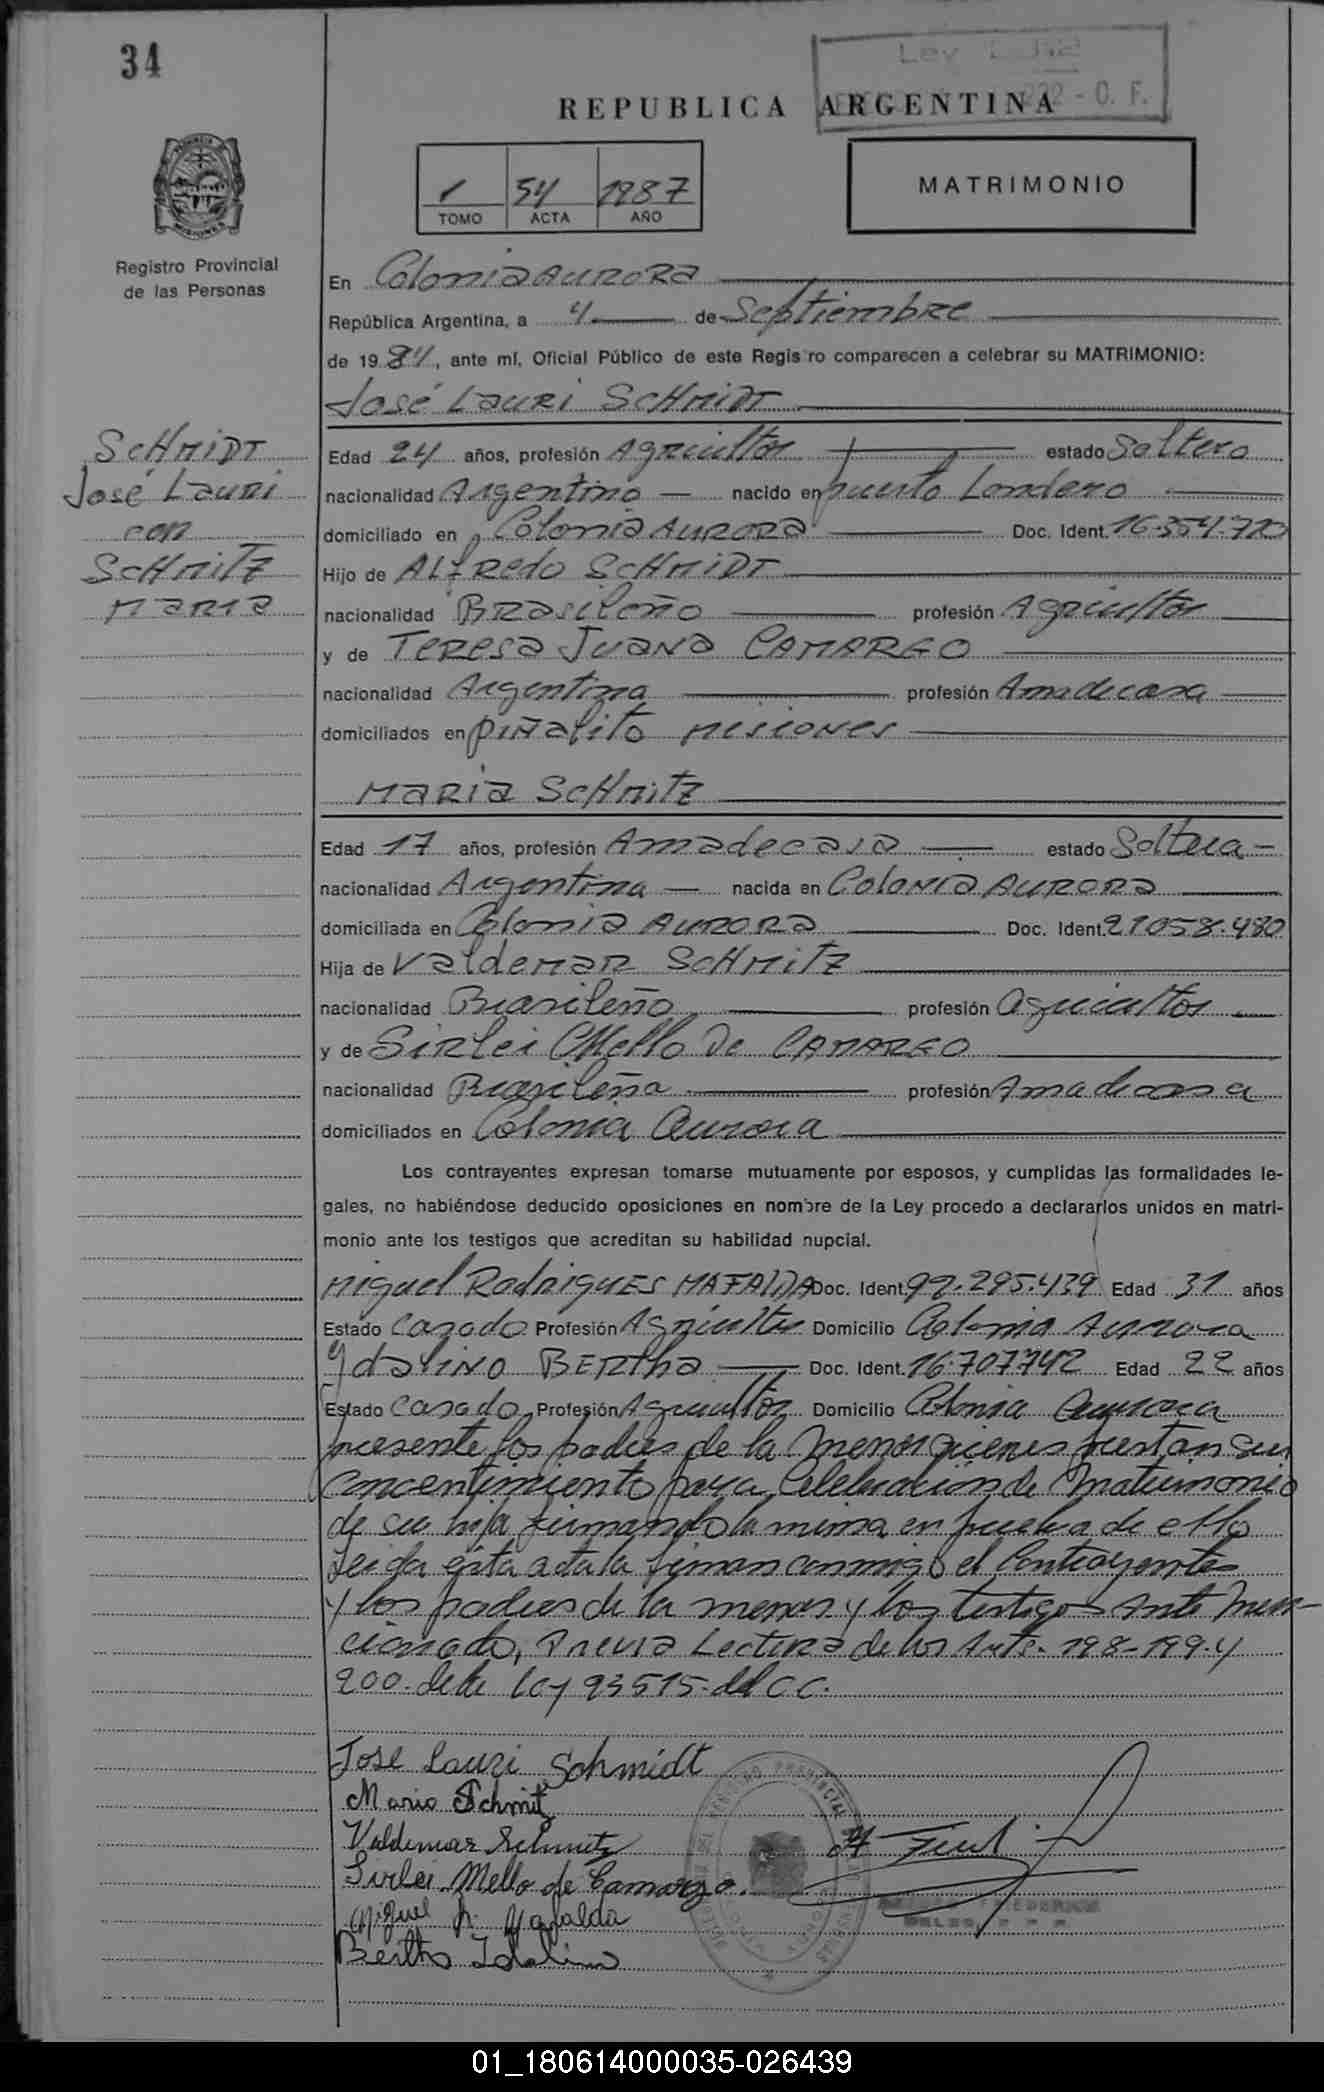 34
Ley
REPUBLICA ARGENTINA
- O. F.
1 54 1987
TOMO ACTA AÑO
MATRIMONIO
Registro Provincial
de las Personas
En Colonia AURORA
República Argentina, a 4 de Septiembre
de 1984, ante mí, Oficial Público de este Regis ro comparecen a celebrar su MATRIMONIO:
José Lauri SCHMIDT
SCHMIDT
José Lauri
con
SCHMITZ
MARIA
Edad 24 años, profesión Agricultor estado Soltero
nacionalidad Argentino nacido en puerto Londero
domiciliado en Colonia AURORA Doc. Ident. 16.354.710
Hijo de ALFREDO SCHMIDT
nacionalidad Brasileño profesión Agricultor
y de TERESA JUANA CAMARGO
nacionalidad Argentina profesión Amadecasa
domiciliados en piñalito misiones
MARIA SCHMITZ
Edad 17 años, profesión Amadecasa estado Soltera
nacionalidad Argentina nacida en Colonia AURORA
domiciliada en Colonia AURORA Doc. Ident. 21058.480
Hija de VALDEMAR SCHMITZ
nacionalidad Brasileño profesión Agricultor
y de Sirlei Mello De CAMARGO
nacionalidad Brasileña profesión Amadecasa
domiciliados en Colonia Aurora
Los contrayentes expresan tomarse mutuamente por esposos, y cumplidas las formalidades le-
gales, no habiéndose deducido oposiciones en nombre de la Ley procedo a declararlos unidos en matri-
monio ante los testigos que acreditan su habilidad nupcial.
Miguel Rodrigues MAFALDA Doc. Ident. 92.295.439 Edad 31 años
Estado Casado Profesión Agricultor Domicilio Colonia Aurora
Ydalino BERTHA Doc. Ident. 16.707.742 Edad 22 años
Estado Casado Profesión Agricultor Domicilio Colonia Aurora
presente los padres de la menor quienes prestan su
concentimiento para Celebracion de Matrimonio
de su hija firmando la misma en prueba de ello
Leida esta acta la firman conmigo el Contrayentes
y los padres de la menor y los testigos ante men-
cionado, Previa Lectura de los Arts. 198-199.y
200. de la ley 23515. del C C.
Jose Lauri Schmidt
Maria Schmitz
Valdemar Schmitz
Sirlei Mello de Camargo.
Miguel R. Mafalda
Bertha Idalino
01_180614000035-026439